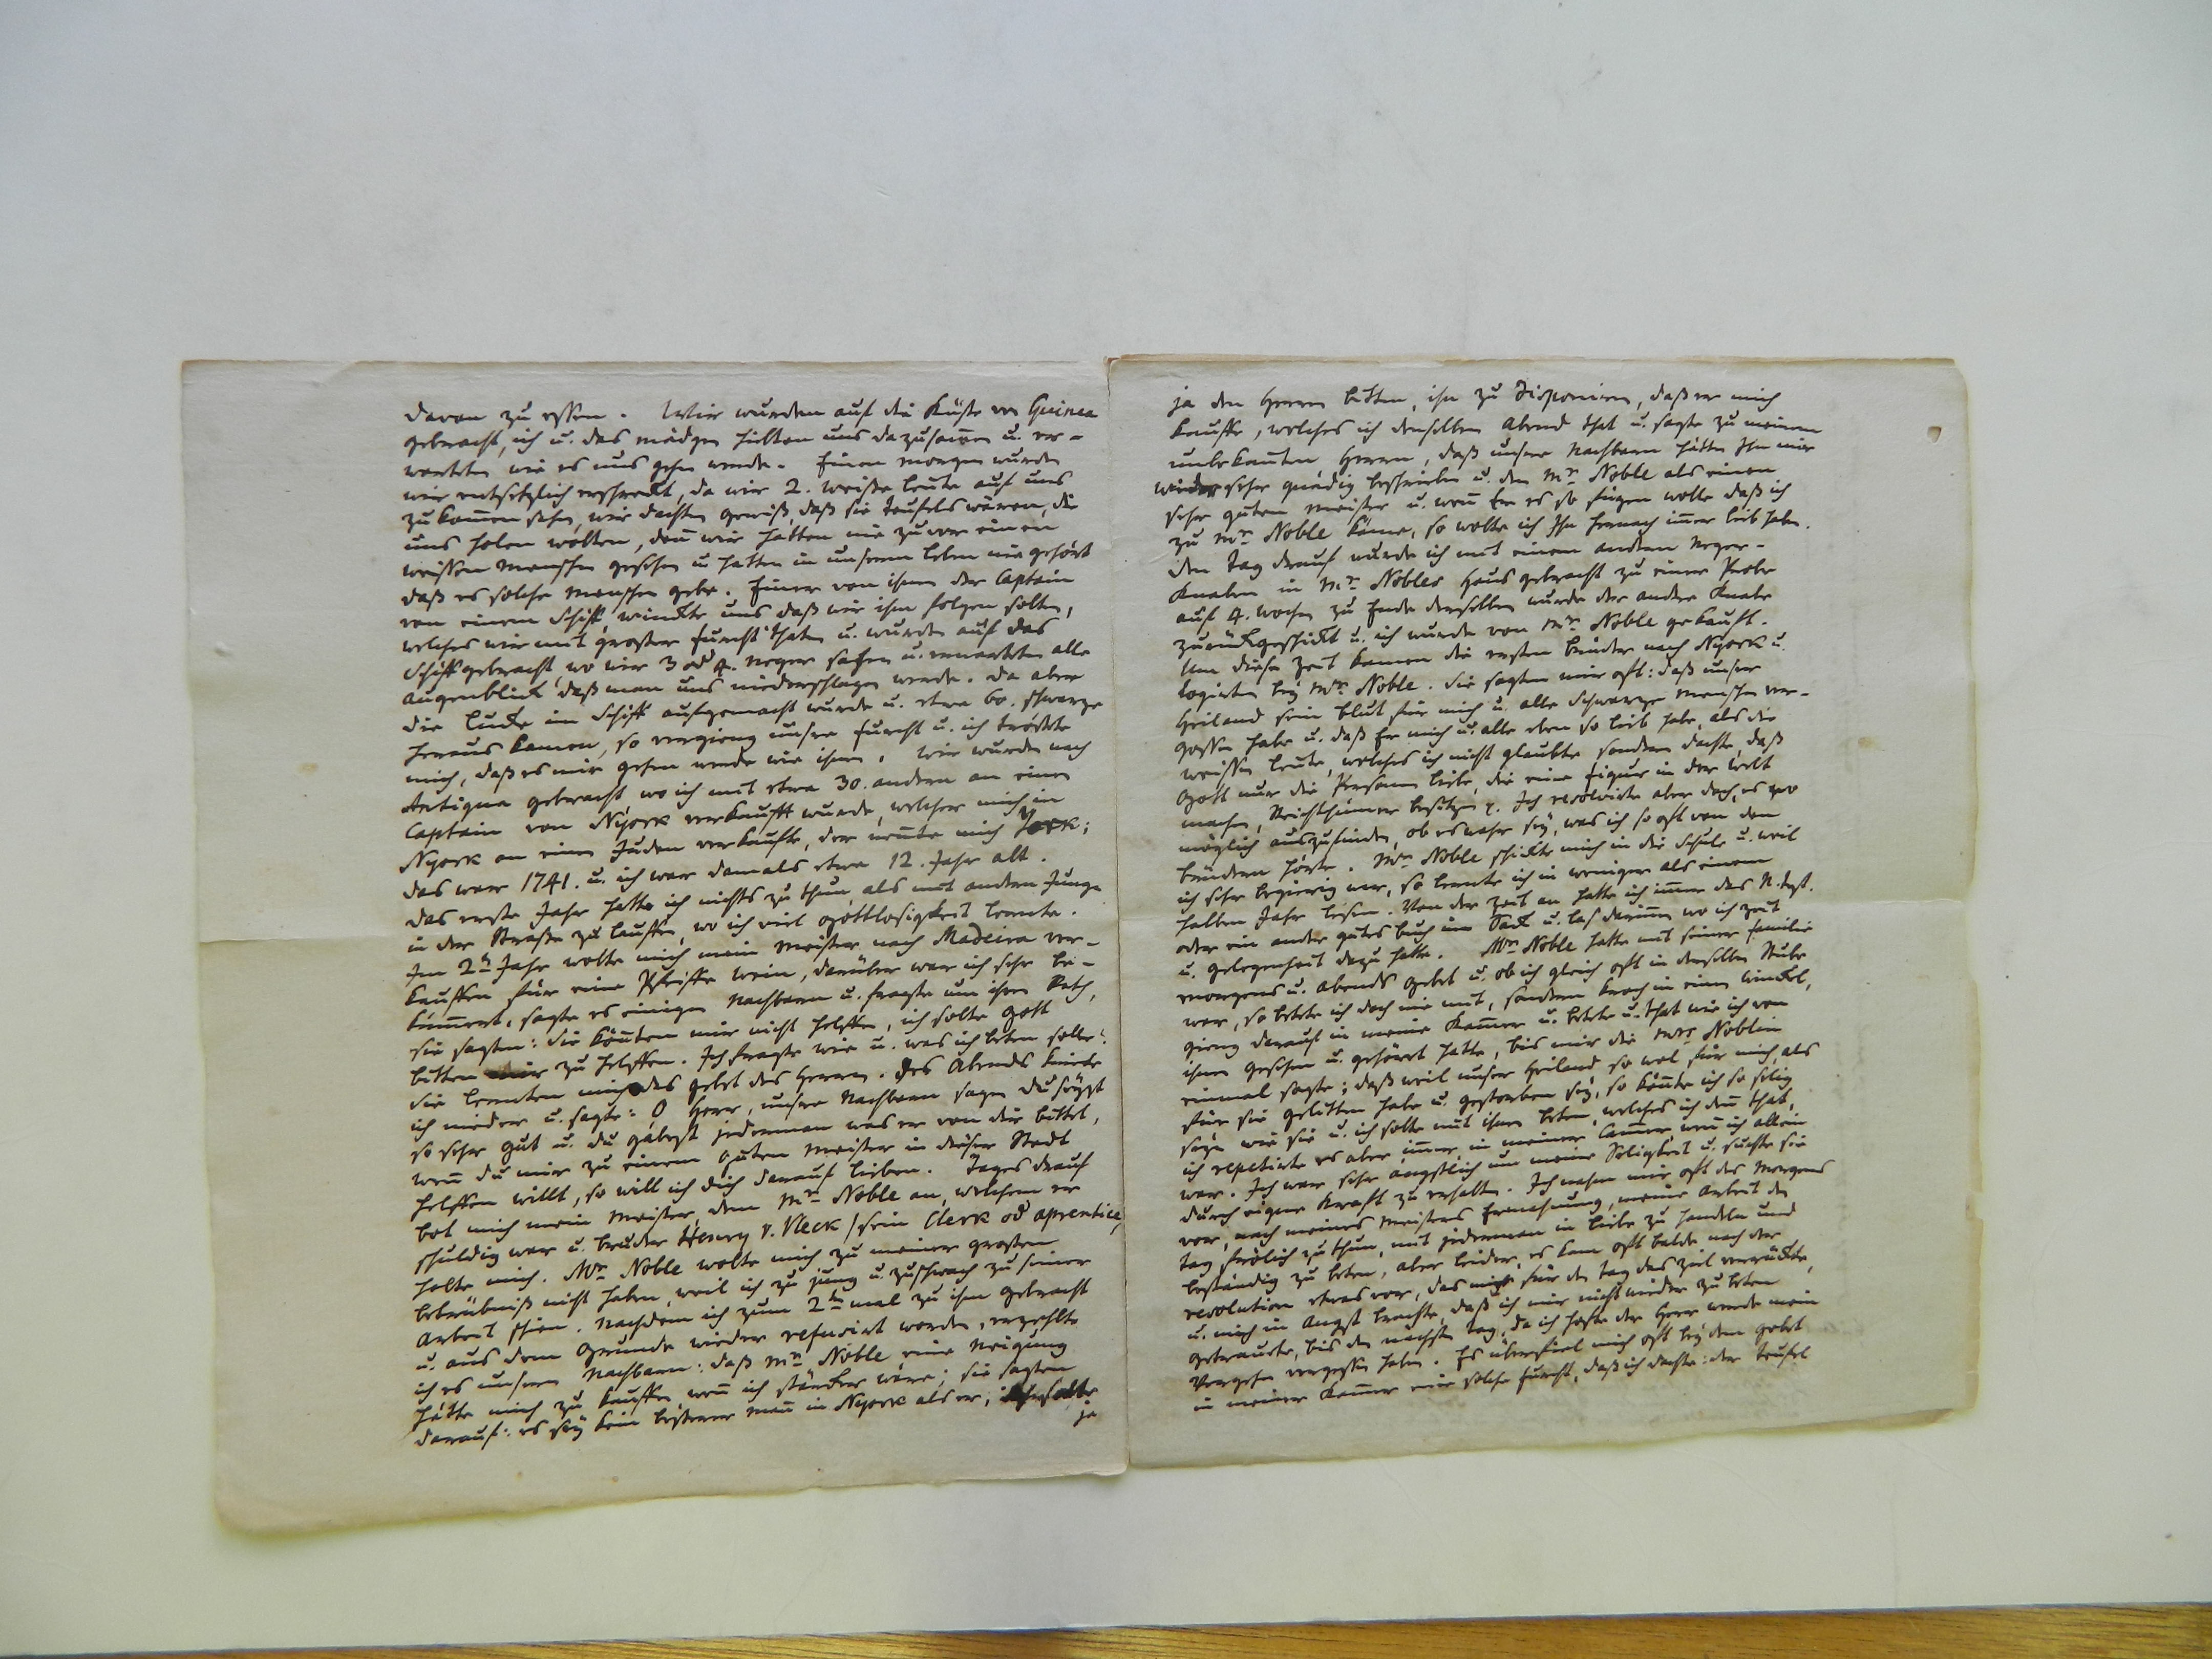 davon zu essen. Wir wurden auf die Küste von Guinea
gebracht, ich u. das mädgen hielten uns da zusam̅en u. er-
warteten wie es uns gehen werde. Einen morgen wurden
wir entsetzlich erschreckt, da wir 2. weisse leute auf uns
zu kom̅en sehn, wir dachten gewiß, daß sie teufels wären, die
uns holen wolten, den̅ wir hatten nie zuvor einen
weissen menschen gesehen u hatten in unserm leben nie gehört
daß es solche menschen gebe. Einer von ihnen der Captain
von einem Schiff, winckte uns daß wir ihm folgen solten,
welches wir mit grosser furcht thaten u. wurden auf das
Schiff gebracht, wo wir 3 od 4. neger sahen u. erwarteten alle
augenblick daß man uns niederschlagen werde. Da aber
die Lucke im Schiff aufgemacht wurde u. etwa 60. schwarze
heraus kamen, so vergieng unsre furcht u. ich tröstete
mich, daß es mir gehen werde wie ihnen. Wir wurden nach
Antigua gebracht, wo ich mit etwa 30. andern an einen
Captain von Nyork verkaufft wurde, welcher mich in
Nyork an einen Juden verkaufte, der nen̅te mich York;
das war 1741. u. ich war damals etwa 12. Jahr alt.
Das erste Jahr hatte ich nichts zu thun, als mit andern Jungs
in der Strasse zu lauffen, wo ich viel gottlosigkeit lernte.
Im 2tn Jahr wolte mich mein Meister nach Madeira ver-
kauffen für eine Pfeiffe Wein, darüber war ich sehr be-
küm̅ert, sagte es einigen Nachbarn u. fragte um ihren Rath,
sie sagten: sie kön̅ten mir nicht helffen, ich solte Gott
bitten mir zu helffen. Ich fragte wie u. was ich beten solle?
Sie lernten mich das gebet des Herrn. Des Abends kniete
ich nieder u. sagte: O Herr, unsre Nachbarn sagen du seyst
so sehr gut u. du gäbest jederman was er von dir bittet,
wen̅ du mir zu einem guten Meister in dieser Stadt
helffen willt, so will ich dich darauf lieben. Tages drauf
bot mich mein Meister dem Mr. Noble an, welchem er
schuldig war u. bruder Henry v. Vleck / sein Clerk od aprentice,
holte mich. Mr. Noble wolte mich zu meiner grossen
betrübniß nicht haben, weil ich zu jung u. zu schwach zu seiner
arbeit schien. Nachdem ich zum 2ten mal zu ihm gebracht
u. aus dem Grunde wieder refusirt worden, erzehlte
ich es unsern Nachbarn: daß Mr. Noble eine Neigung
hätte mich zu kauffen, wen̅ ich stärcker wäre; sie sagten
darauf: es sey kein besserer man̅ in Nyork als er, ich solte
ja
ja den Herrn bitten, ihn zu disponiren, daß er mich
kauffe, welches ich denselben Abend that u. sagte zu meinem
unbekan̅ten Herrn, daß unsre Nachbarn hätten Ihn mir
wieder sehr gnädig beschrieben u. den Mr. Noble als einen
sehr guten Meister u. wen̅ Er es so fügen wolle daß ich
zu Mr. Noble käme, so wolte ich Ihn hernach im̅er lieb haben.
Den Tag drauf wurde ich mit einem andern Neger-
Knaben in Mr. Nobles Haus gebracht zu einer Probe
auf 4. wochen zu Ende derselben wurde der andre Knabe
zurückgeschickt u. ich wurde von Mr. Noble gekauft.
Um diese Zeit kamen die ersten brüder nach Nyork u.
logirten bey Mr. Noble. Sie sagten mir oft: daß unser
Heiland sein blut für mich u. alle Schwarze menschen ver-
gossen habe u. daß Er mich u. alle eben so lieb habe, als die
weissen leute, welches ich nicht glaubte sondern dachte, daß
Gott nur die Personen liebe, die eine figur in der Welt
machen, Reichthümer besitzen p. Ich resolvirte aber doch, es wo
möglich auszufinden, ob es wahr sey, was ich so oft von den
brüdern hörte. Mr. Noble schickte mich in die Schule u. weil
ich sehr begierig war, so lernte ich in weniger als einem
halben Jahr lesen. Von der zeit an hatte ich im̅er das N. Test.
oder ein ander gutes buch im Sack u. las darin̅en wo ich zeit
u. gelegenheit dazu hatte. Mr. Noble hatte mit seiner familie
morgens u. abends gebet u. ob ich gleich oft in derselben Stube
war, so betete ich doch nie mit, sondern kroch in einen Winckel,
gieng darauf in meine Kam̅er u. betete u. that wie ich von
ihnen gesehen u. gehöret hatte, bis mir die Mrs. Noblin
einmal sagte; daß weil unser Heiland so wol für mich, als
für sie gelitten habe u. gestorben sey, so kön̅te ich so selig
seyn wie sie u. ich solte mit ihnen beten, welches ich den̅ that,
ich repetirte es aber im̅er, in meiner Cam̅er, wen̅ ich allein
war. Ich war sehr ängstlich um meine Seligkeit u. suchte sie
durch eigene Kraft zu erhalten. Ich nahm mir oft des Morgens
vor, nach meines Meisters Ermahnung, meine Arbeit den
tag frölich zu thun, mit jederman in liebe zu handeln und
beständig zu beten, aber leider, es kam oft balde nach der
resolution etwas vor, das mir für den tag das ziel verrückte,
u. mich in Angst brachte, daß ich mir nicht wieder zu beten
getrauete, bis den nächsten tag, da ich hofte der Herr werde mein
Vergehn vergessen haben. Es überfiel mich oft bey dem gebet
in meiner Kam̅er eine solche furcht, daß ich dachte: der teufel